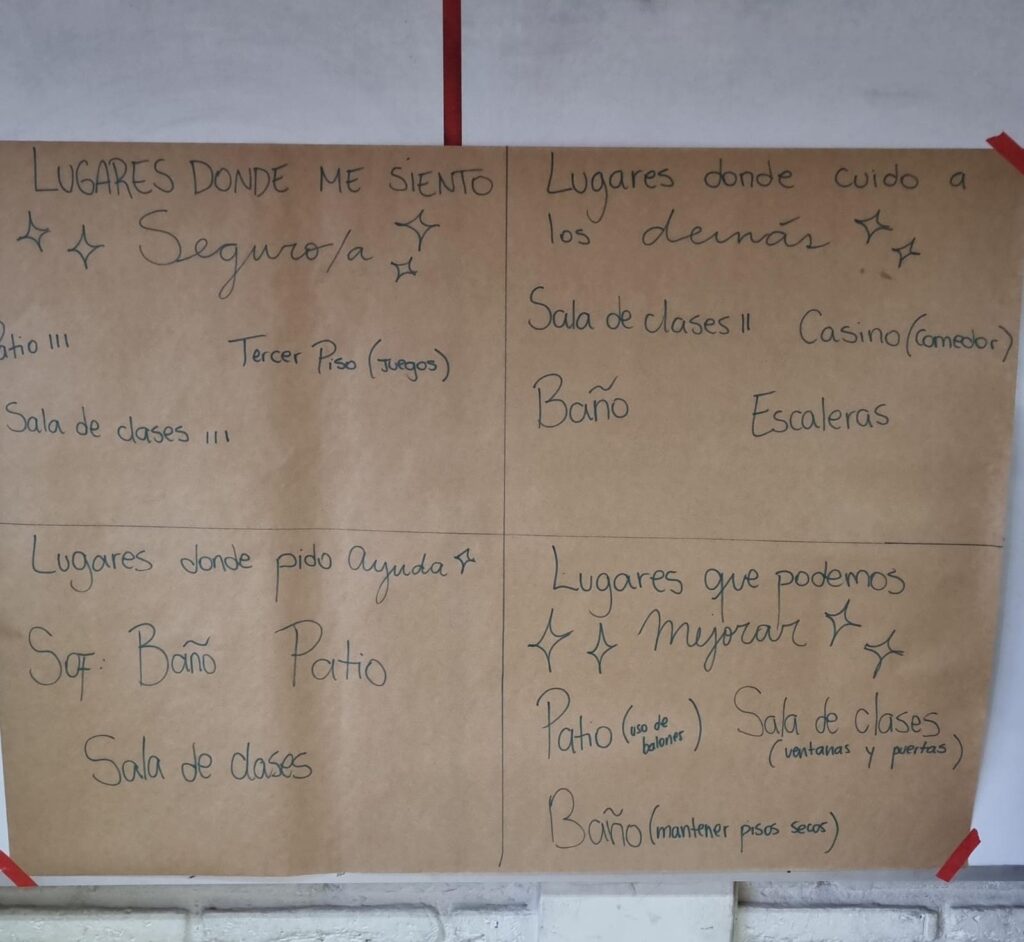 LUGARES DONDE ME SIENTO
Seguro/a
Patio III
Tercer Piso (Juegos)
Sala de clases III
Lugares donde cuido a
los demás
Sala de clases II
Casino (Comedor)
Baño
Escaleras
Lugares donde pido ayuda
Baño Patio
Sala de clases
Lugares que podemos
Mejorar
Patio (uso de
balones)
Sala de clases
(ventanas y puertas)
Baño (mantener pisos secos)